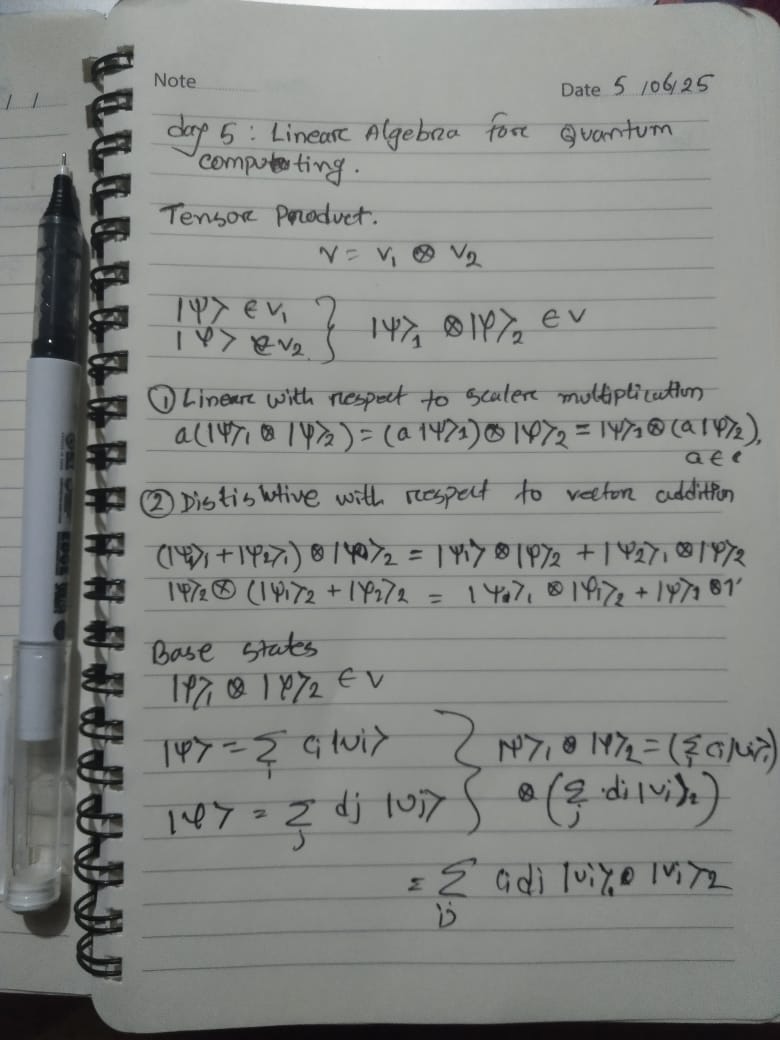 Note
Date 5/06/25
/ /
day 5 : Linear Algebra for Quantum
computing.
Tensor Product.
V = V₁ ⊗ V₂
|ψ> ∈ V₁
|φ> ∈ V₂ } |ψ>₁ ⊗ |φ>₂ ∈ V
① Linear with respect to scaler multiplication
a(|ψ>₁ ⊗ |φ>₂) = (a|ψ>₁) ⊗ |φ>₂ = |ψ>₁ ⊗ (a|φ>₂),
a ∈ c
② Dististutive with respect to vector addition
(|ψ₁>₁ + |ψ₂>₁) ⊗ |φ>₂ = |ψ₁> ⊗ |φ>₂ + |ψ₂>₁ ⊗ |φ>₂
|ψ>₂ ⊗ (|φ₁>₂ + |φ₂>₂ = |ψ>₁ ⊗ |φ₁>₂ + |ψ>₁ ⊗ |
Base states
|ψ>₁ ⊗ |φ>₂ ∈ V
|ψ> = Σᵢ cᵢ |uᵢ> } |ψ>₁ ⊗ |φ>₂ = (Σᵢ cᵢ |uᵢ>₁)
|φ> = Σⱼ dⱼ |vⱼ> ⊗ (Σⱼ dⱼ |vⱼ>₂)
= Σᵢⱼ cᵢdⱼ |uᵢ>₁ ⊗ |vⱼ>₂